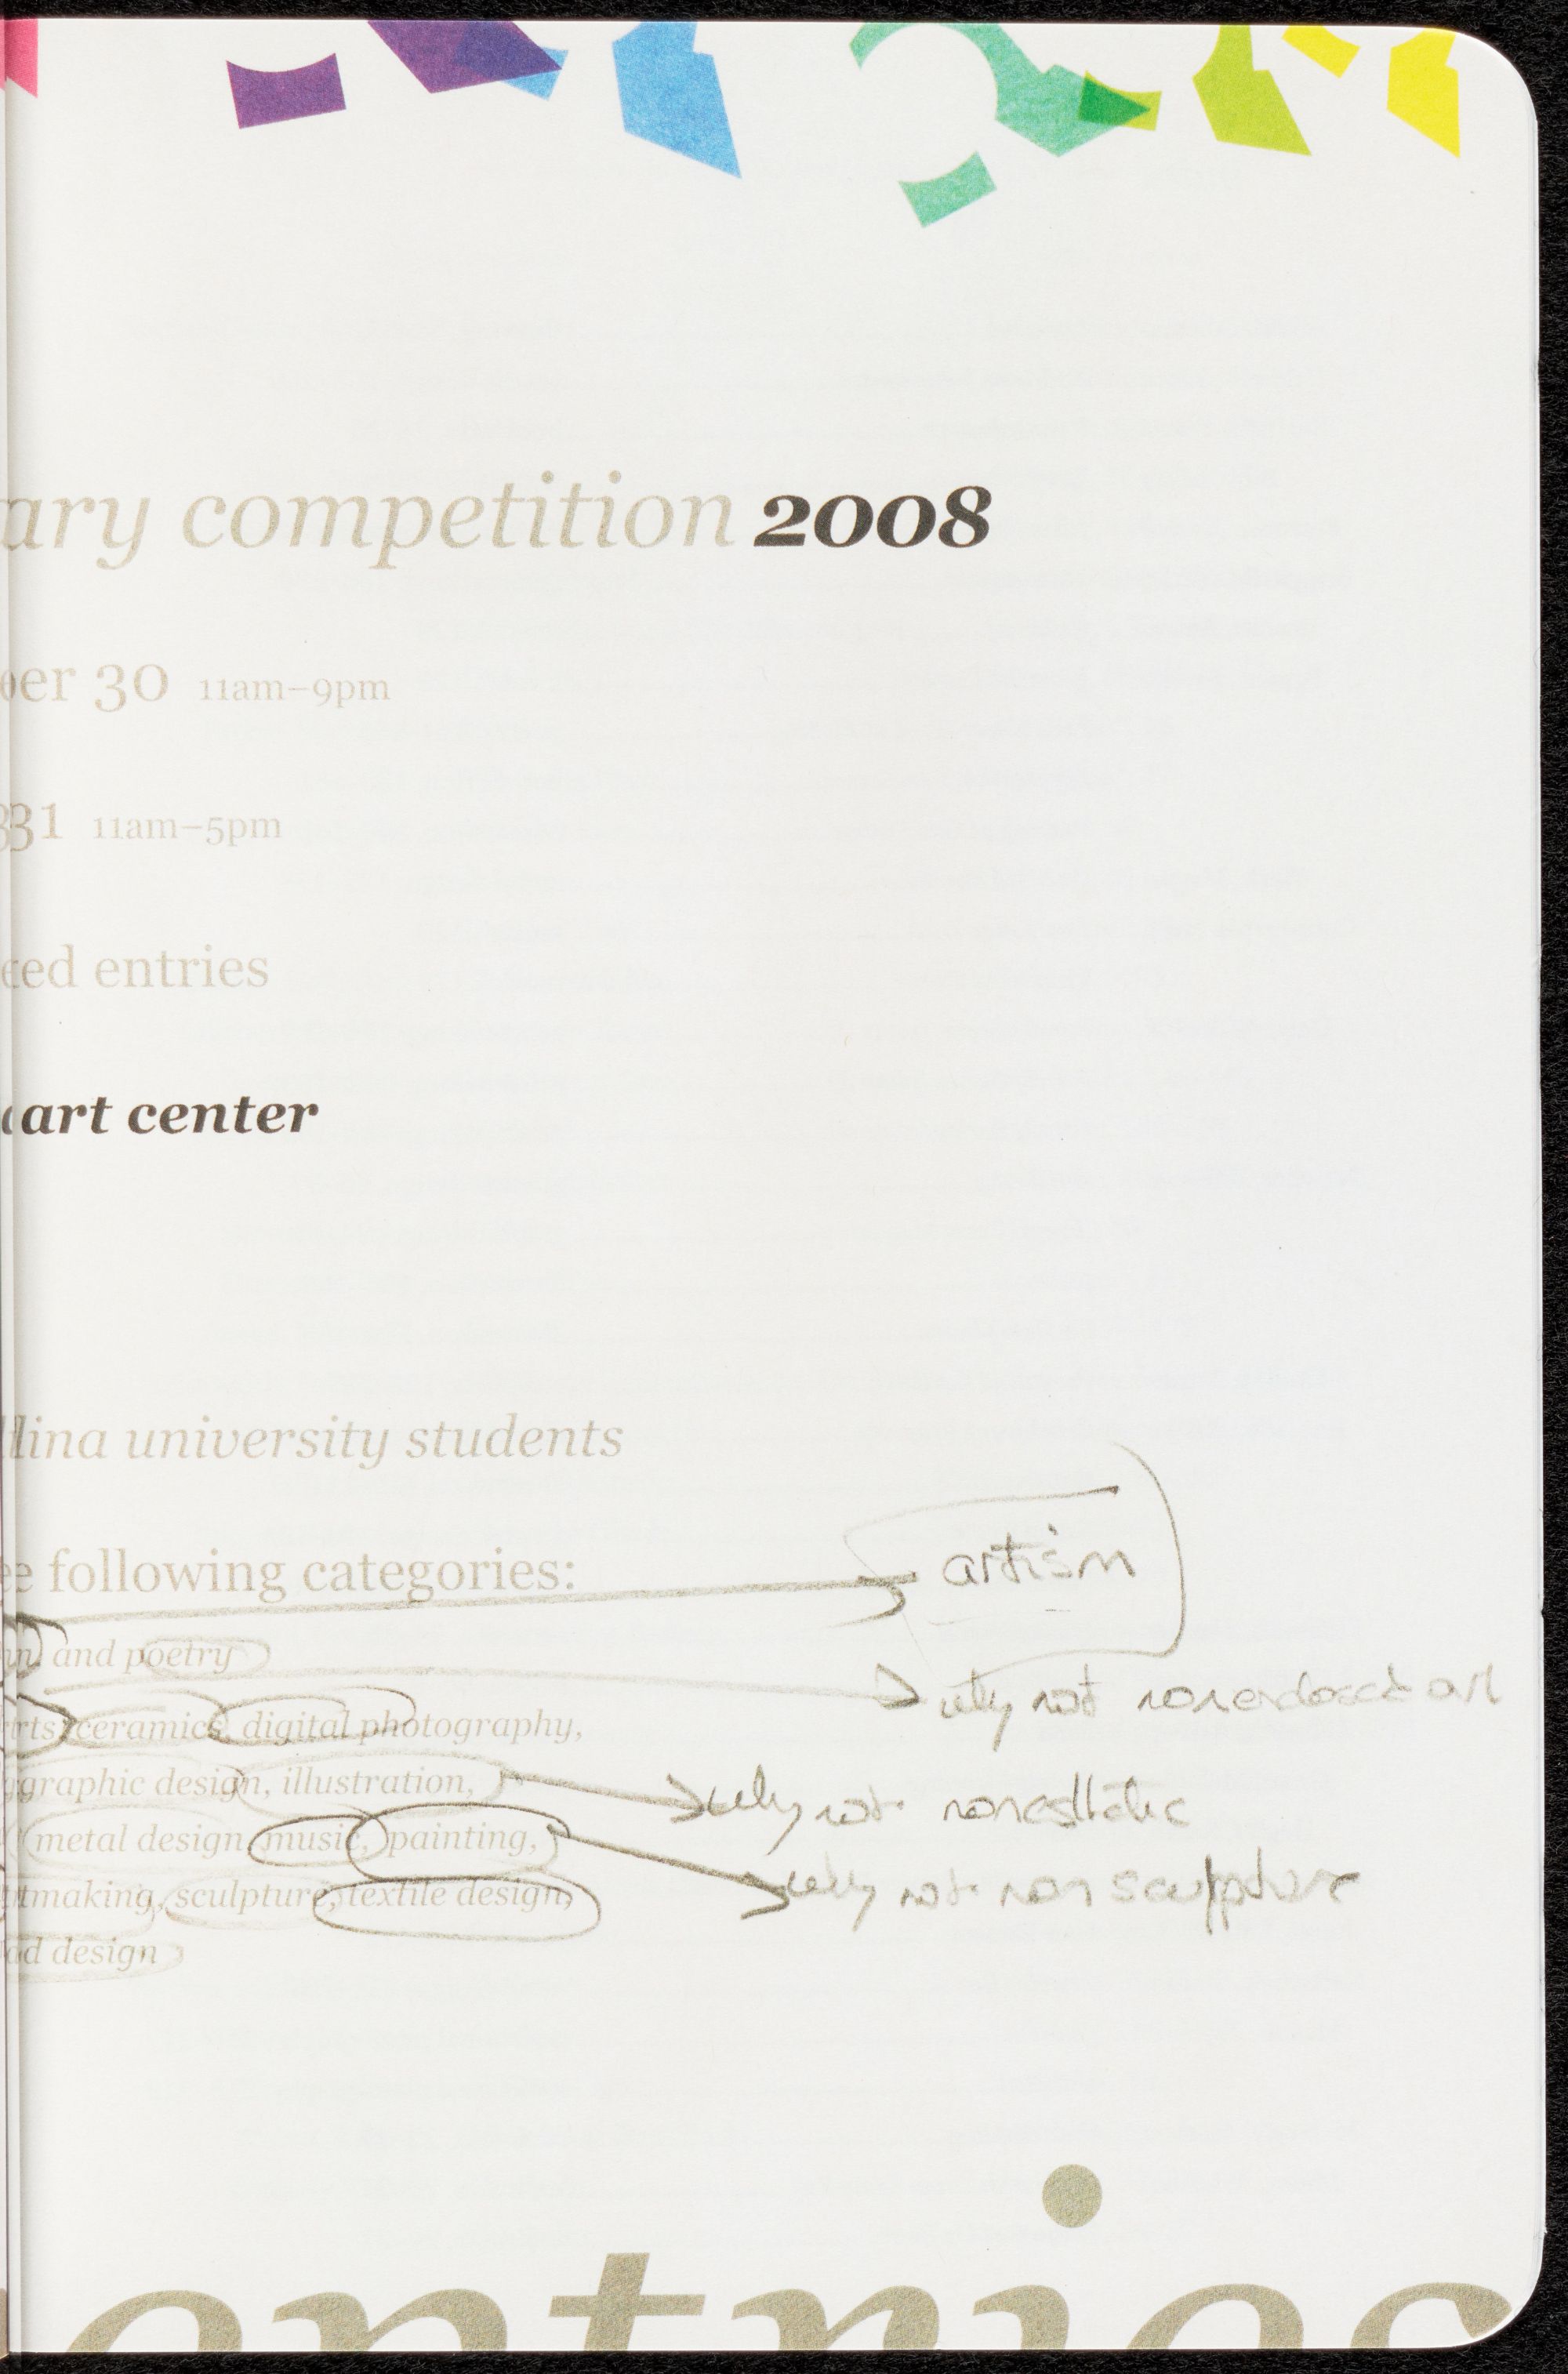 ary competition 2008
ber 30 11am–9pm
31 11am–5pm
ed entries
art center
lina university students
e following categories:
artism
and poetry
why not art
arts, ceramics, digital photography,
graphic design, illustration,
why not
metal design, music, painting,
tmaking, sculpture, textile design,
why not non sculpture
ad design
entries